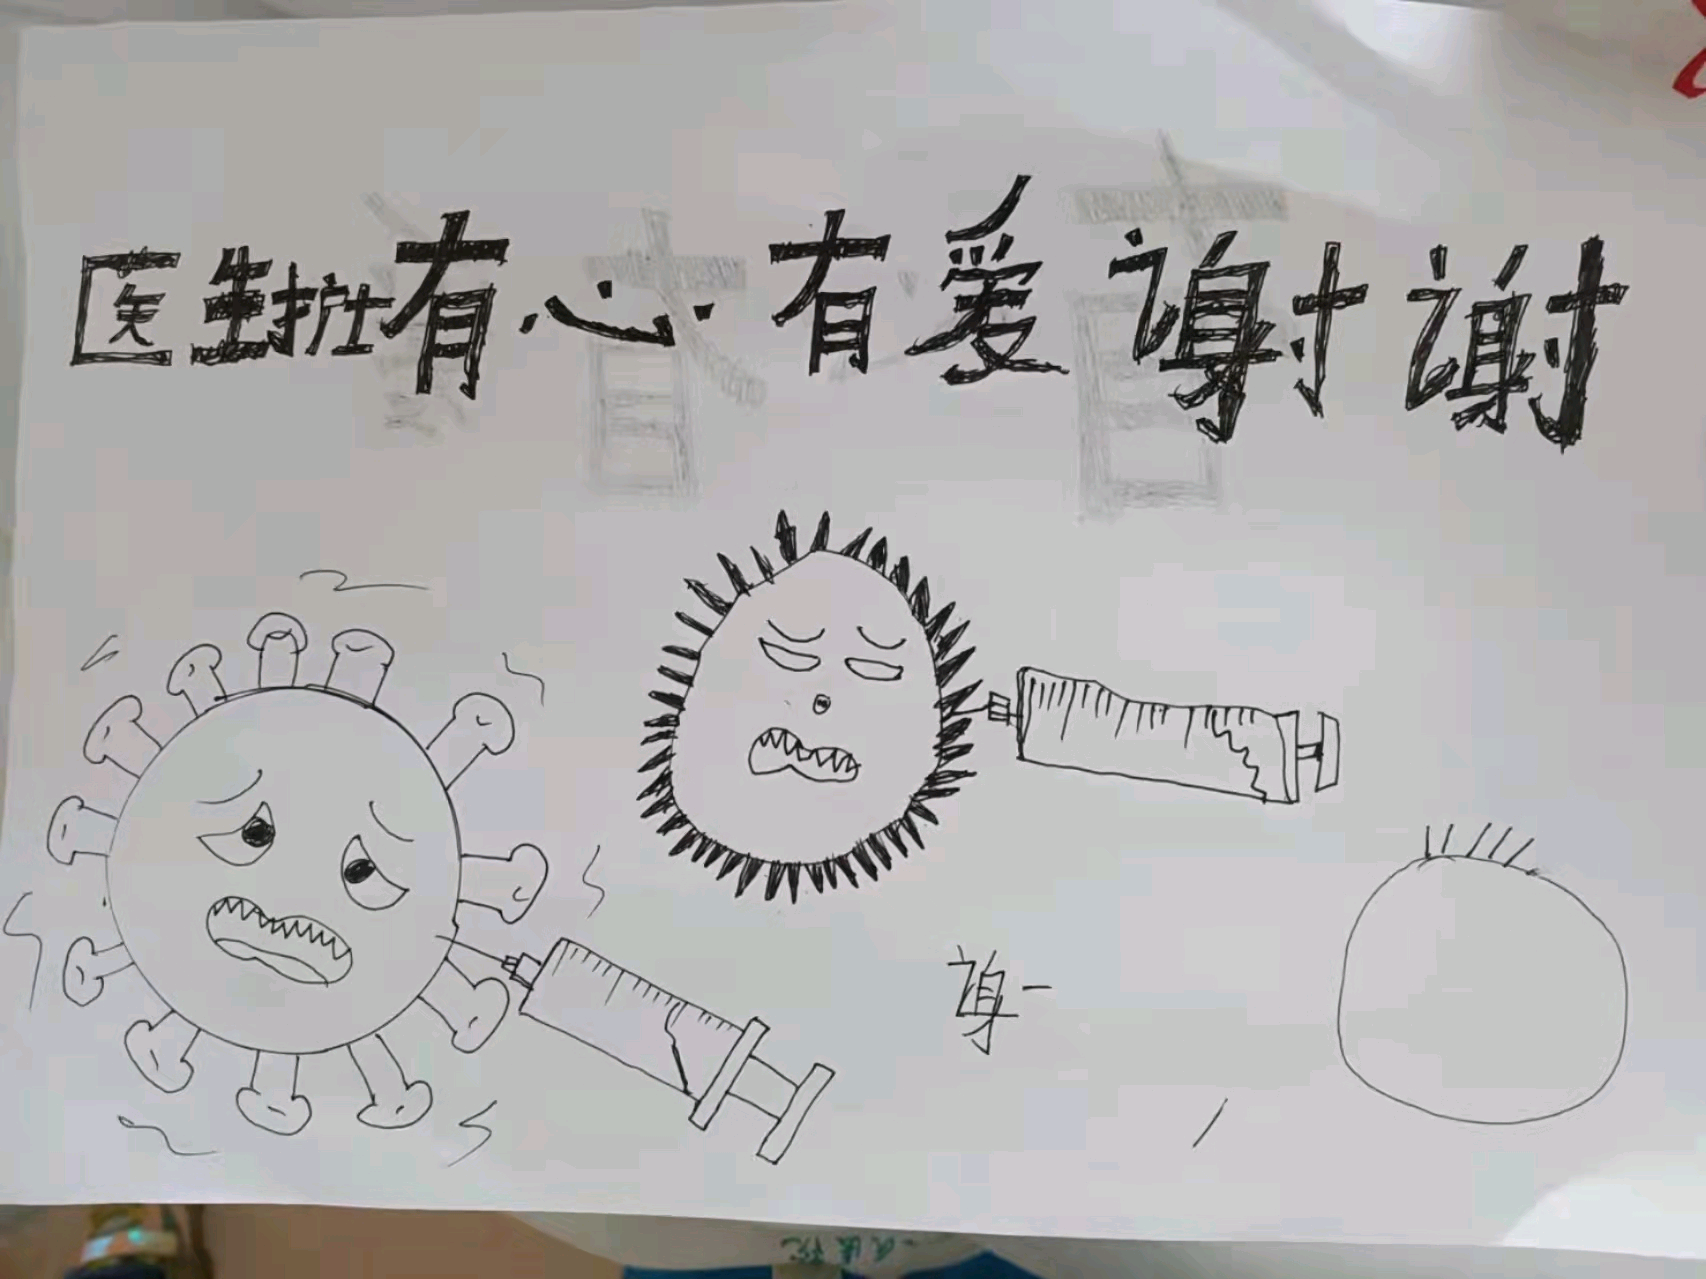 医生护士有心有爱谢谢